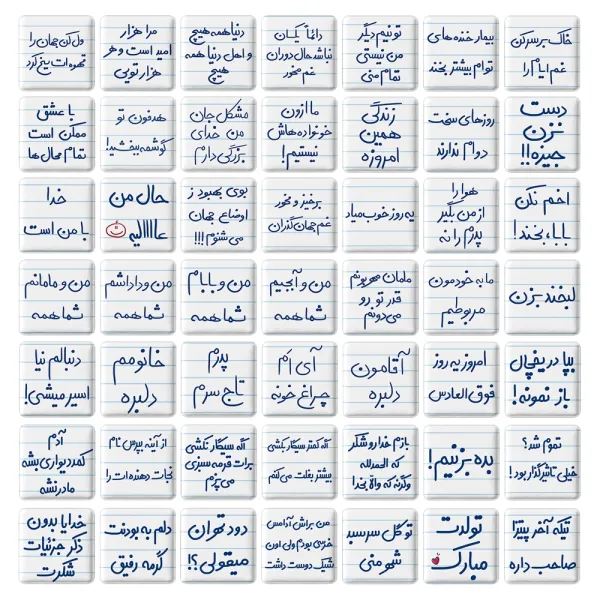 خاک بر سر کن
غم ایام را
بیمار خنده های
توام بیشتر بخند
تو نیم دیگر
من نیستی
تمام منی
دائماً یکسان
نباشد حال دوران
غم مخور
دنیا همه هیچ
و اهل دنیا همه
هیچ
مرا هزار
امید است و هر
هزار تویی
ول کن جهان را
قهوه ات یخ کرد
دست
نزن
جیزه!!
روزهای سخت
دوام ندارند
زندگی
همین
امروزه
ما ازون
خونواده هاش
نیستیم!
مشکل جان
من خدای
بزرگی دارم
هدفون تو
گوشمه ببخشید!
با عشق
ممکن است
تمام محال ها
اخم نکن
بابا، بخند!
هوا را
از من بگیر
پدرم را نه
یه روز خوب میاد
برخیز و مخور
غم جهان گذران
بوی بهبود ز
اوضاع جهان
می شنوم!!!
حال من
عاااالیه
خدا
با من است
لبخند بزن
ما به خودمون
مربوطیم
مامان مهربونم
قدر تو رو
می‌دونم
من و آبجیم
شما همه
من و بابام
شما همه
من و داداشم
شما همه
من و مامانم
شما همه
بپا در یخچال
باز نمونه!
امروز یه روز
فوق العادس
آقامون
دلبره
آی اَم
چراغ خونه
پدرم
تاج سرم
خانومم
دلبره
دنبالم نیا
اسیر میشی!
تموم شد؟
خیلی تاثیرگذار بود!
بده بزنیم!
بازم خدارو شکر
که الحمدلله
وگرنه که والا بخدا
اگه کمتر سیگار بکشی
بیشتر بغلت می‌کنم
اگه سیگار نکشی
برات قرمه سبزی
می‌پزم
از آینه بپرس نام
نجات دهنده ات را
آدم
کمد دیواری بشه
مادر نشه
تیکه آخر پیتزا
صاحب داره
تولدت
مبارک
تو گل سرسبد
شهر منی
من براش آدامس
خرسی بودم ولی اون
شیک دوست داشت
دود تهران
میقولی؟!
دلم به بودنت
گرمه رفیق
خدایا بدون
ذکر جزئیات
شکرت